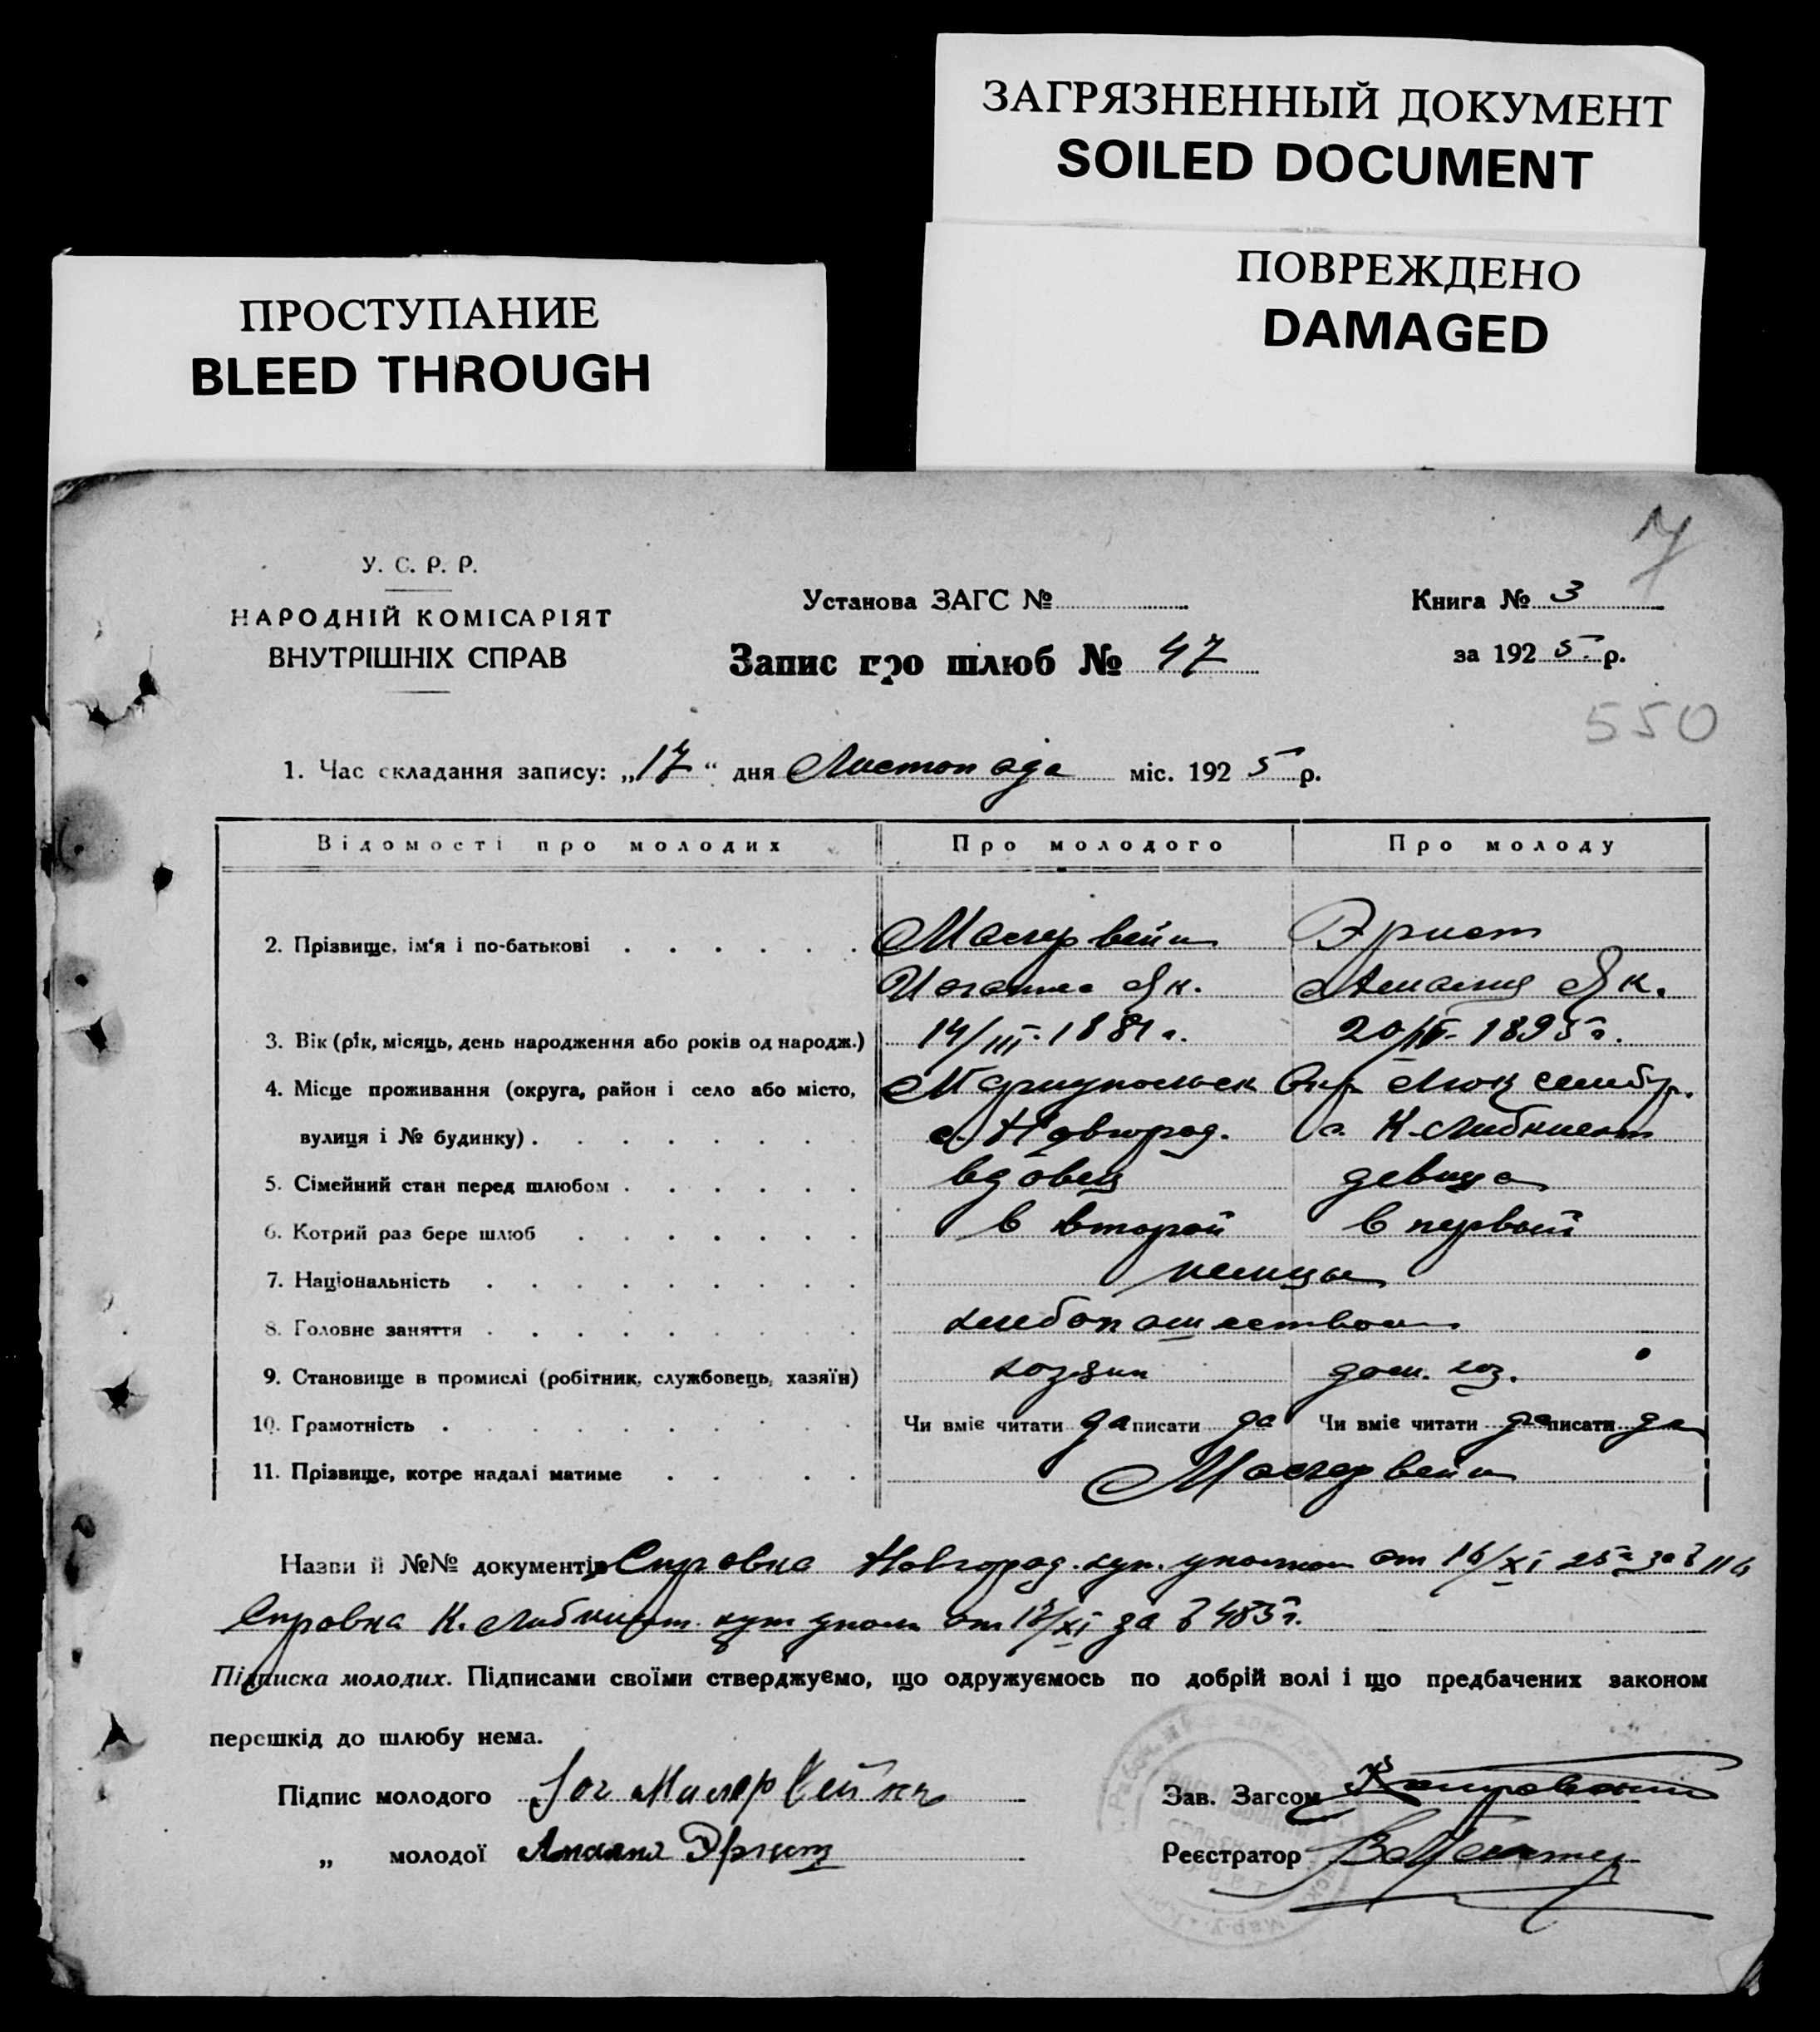 ЗАГРЯЗНЕННЫЙ ДОКУМЕНТ
SOILED DOCUMENT
ПОВРЕЖДЕНО
DAMAGED
ПРОСТУПАНИЕ
BLEED THROUGH
7
У. С. Р. Р.
НАРОДНІЙ КОМІСАРІЯТ
ВНУТРІШНІХ СПРАВ
Установа ЗАГС №
Книга № 3
Запис про шлюб № 47
за 1925 р.
550
1. Час складання запису: „17“ дня Листопада міс. 1925 р.
Відомості про молодих Про молодого Про молоду
2. Прізвище, ім'я і по-батькові Эрнст
Як. Як.
3. Вік (рік, місяць, день народження або років од народж.) 14/III-1881 г.
4. Місце проживання (округа, район і село або місто, Мариупольск Окр Люксембр.
вулиця і № будинку) с. Новгород. К. Либкнехт
5. Сімейний стан перед шлюбом вдовец девица
6. Котрий раз бере шлюб в второй в первый
7. Національність немцы
8. Головне заняття хлебопашеством
9. Становище в промислі (робітник, службовець, хазяїн) хозяин дом. хоз.
10. Грамотність Чи вміє читати да писати да Чи вміє читати да писати да
11. Прізвище, котре надалі матиме
Назви й №№ документів Справка Новгород. от 16/XI 25 г за №
Справка К. Либкнехт от /XI за №
Підписка молодих. Підписами своїми стверджуємо, що одружуємось по добрій волі і що предбачених законом
перешкід до шлюбу нема.
Підпис молодого
Зав. Загсом
„ молодої Эрнст
Реєстратор